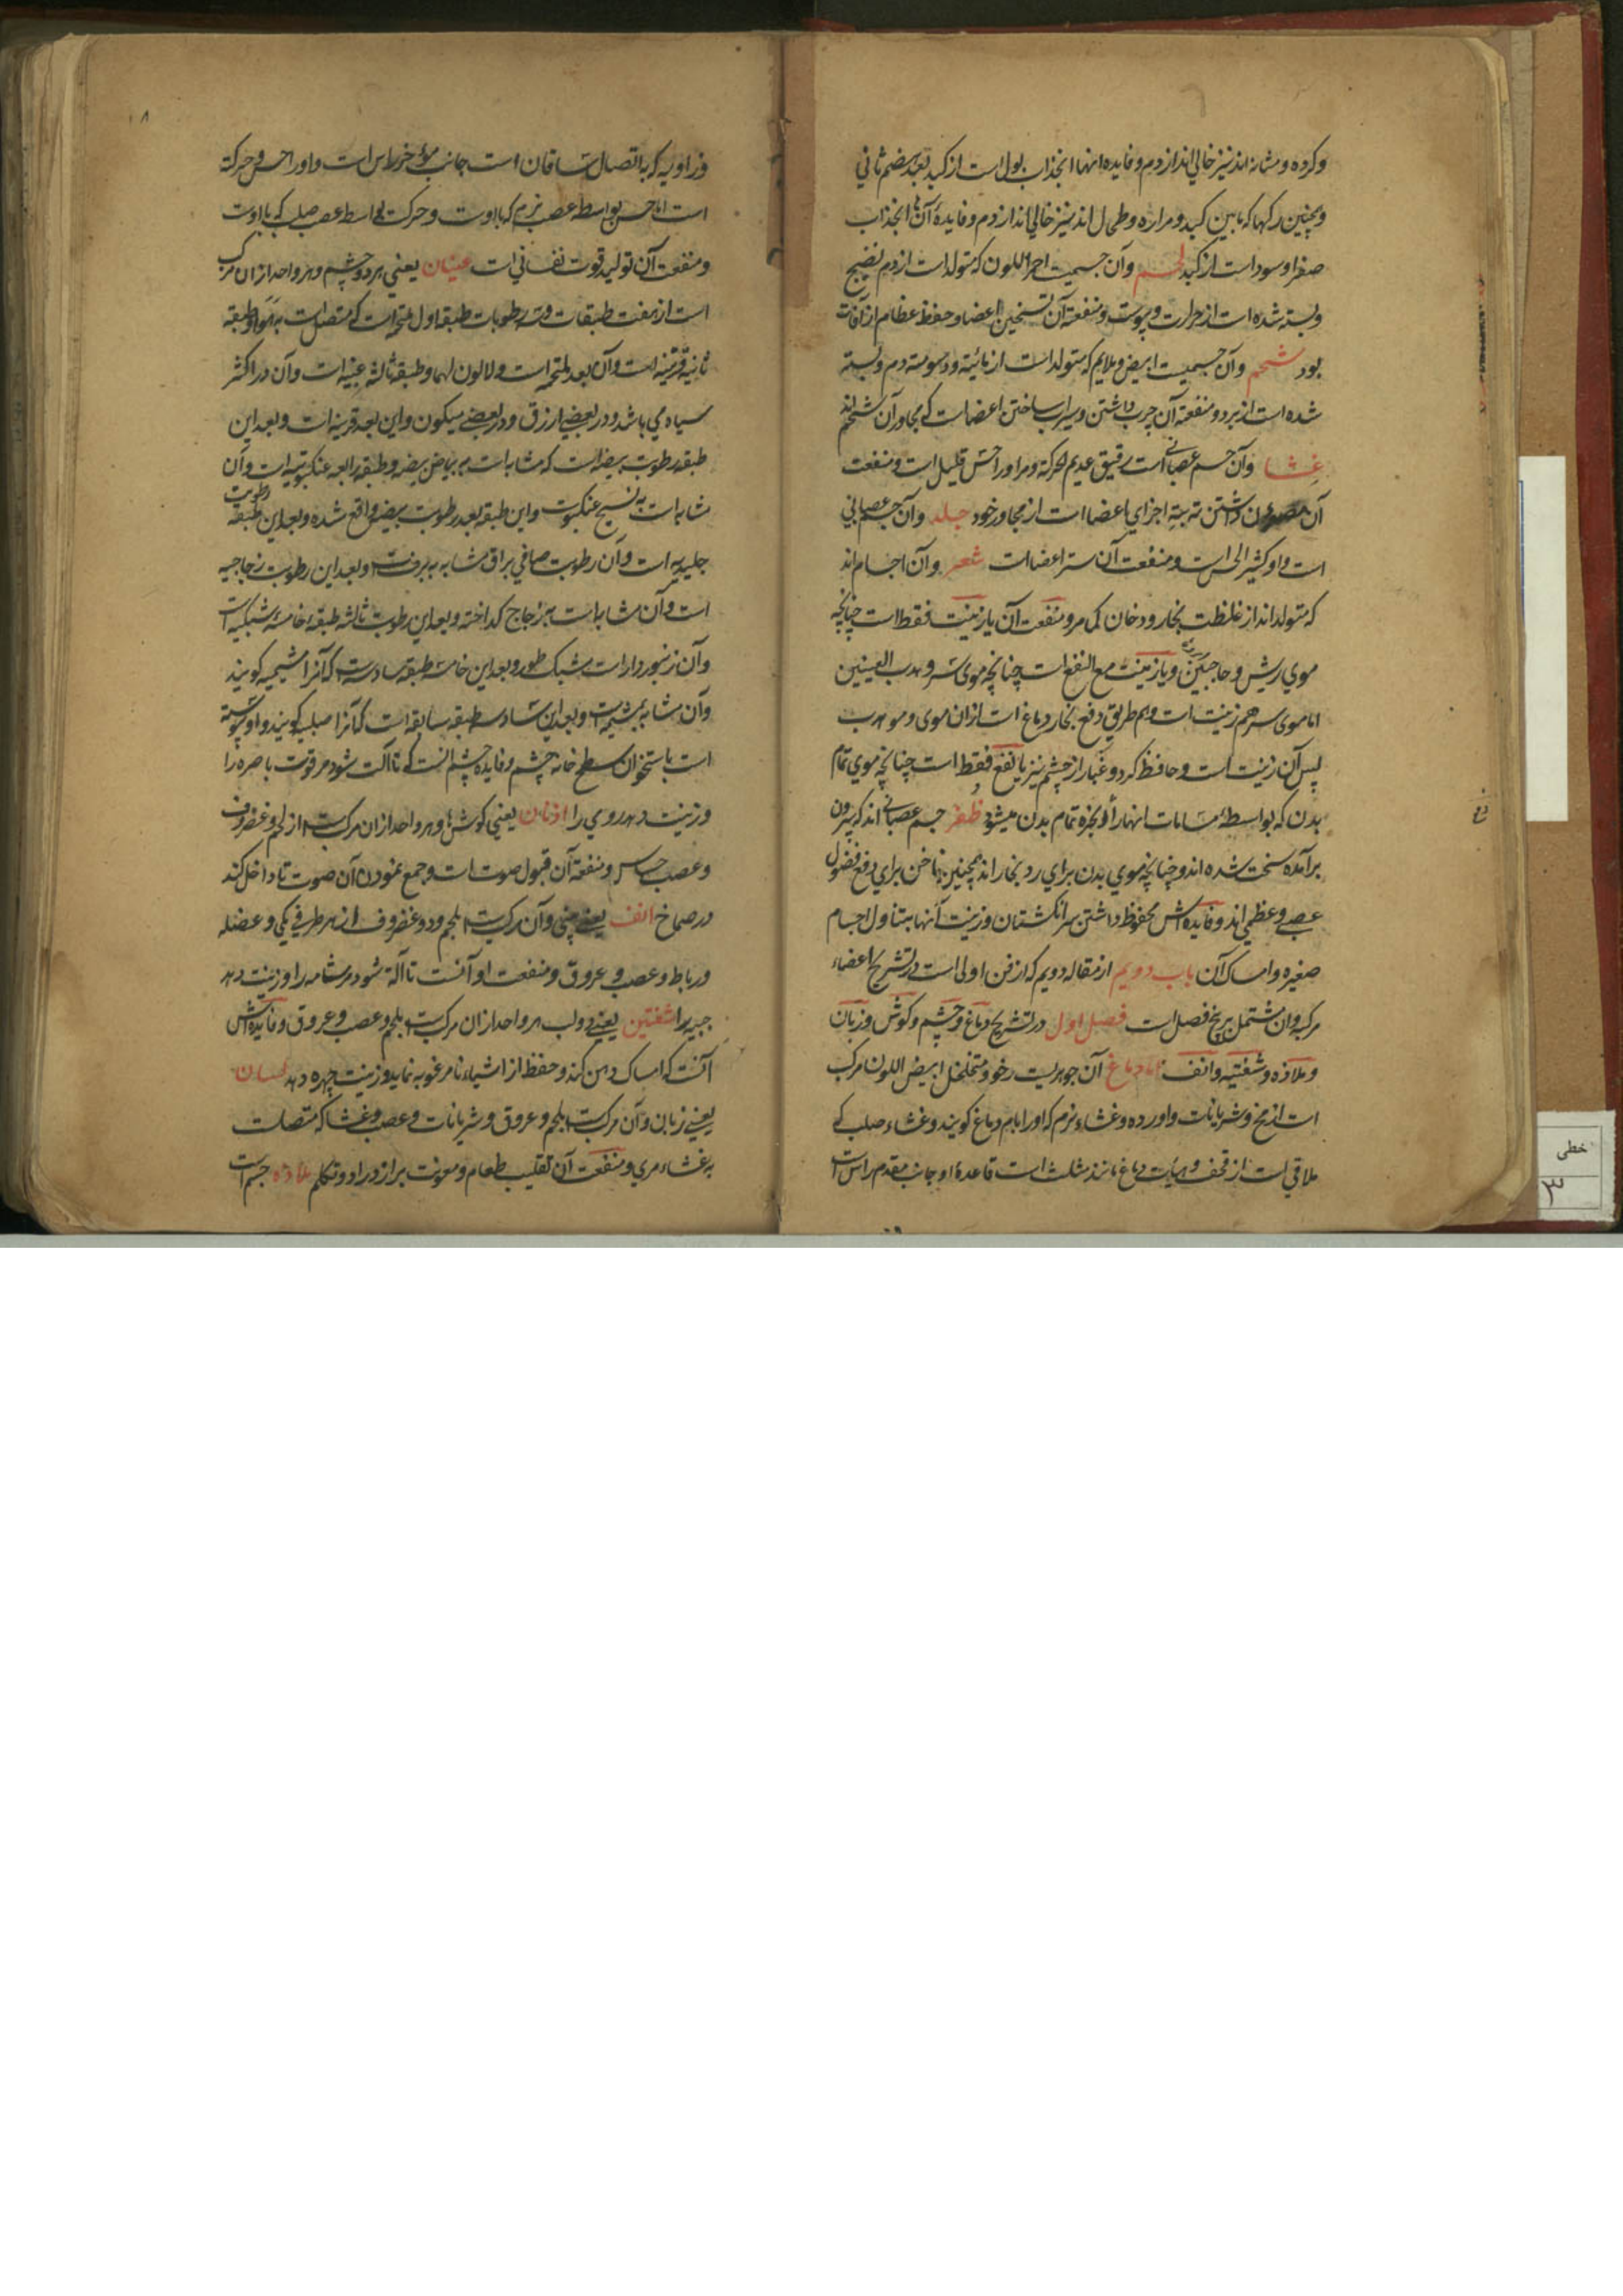 وکرده و مثانه اند نیز خالی اند از دم و فایده انها انجذاب بول است از کبد بعد هضم ثانی
وهمچنین رکها که مابین کبد و مراره و طحال اند نیز خالی اند از دم و فایده آن انجذاب
صفرا و سودا است از کبد لحم وآن جسمیت احمراللون که متولد است از دم نضیج
وبسته شده است از حرارت ویبوست و منفعة آن تسخین اعضا وحفظ عظام از آفات
بود شحم وآن جسمیت ابیض و ملایم که متولد است از مائیته و دسومته دم و بسته
شده است از برد و منفعة آن چرب داشتن و سیراب ساختن اعضا است که مجاور آن شحم اند
غشا وآن جسم عصبانی است رقیق عدیم الحرکة ومر اورا حس قلیل است و منفعت
آن داشتن اجزای اعضا است از مجاور خود جلد وآن جسم عصبانی
است و او کثیر الحس است و منفعت آن ستر اعضا است شعر وآن اجسام اند
که متولد اند از غلظت بخار و دخان کما مر و منفعت آن یا زینت فقط است چنانچه
موی ریش و حاجبین ویا زینت مع النفع است چنانچه موی سر و هدب العینین
اما موی سر هم زینت است وهم طریق دفع بخار دماغ است از ان موی و مو هدب
پس آن زینت است و حافظ کرد و غبار از چشم نیز یا نفع فقط است چنانچه موی تمام
بدن که بواسطۀ مسامات انها رد ابخره تمام بدن میشود ظفر جسم عصبانی اند که بیرون
برآمده سخت شده اند و چنانچه موی بدن برای رد بخار اند همچنین ناخن برای دفع فضول
عصبی و عظمی اند و فایده اش محفوظ داشتن سر انکشتان و زینت آنها بتناول اجسام
صغیره و امساک آن باب دویم از مقاله دویم که از فن اولی است در تشریح اعضاء
مرکبه وان مشتمل بر پنج فصل است فصل اول در تشریح دماغ و چشم و کوش و زبان
وملازه و شفتیه وانف اما دماغ آن جوهریست رخو و متخلخل ابیض اللون مرکب
است از مخ و شریانات و اورده و غشاء نرم که اورا ام دماغ کویند و غشاء صلب که
ملاقی است از قحف و هیأت دماغ مانند مثلث است قاعدۀ او جانب مقدم راس است
۸
وزاویه که باتصال ساقان است جانب مؤخر راس است و او را حس و حرکة
است اما حس بواسطه عصب نرم که با اوست و حرکت بواسطه عصب صلب که با اوست
ومنفعت آن تولید قوت نفسانی است عینان یعنی هر دو چشم و هر واحد از ان مرکب
است از هفت طبقات و سه رطوبات طبقه اول ملتحمه است که متصل است به هوا و طبقه
ثانیه قرنیه است وآن بعد ملتحمه است و لا لون لهما و طبقه ثالثه عنبیه است وآن در اکثر
سیاه می باشد و در بعضی ازرق و در بعضی میکون و این بعد قرنیه است و بعد این
طبقه رطوبت بیضه است که مشابه است به بیاض بیضه و طبقه رابعه عنکبوتیه است وآن
مشابه است به نسیج عنکبوت و این طبقه بعد رطوبت بیضیه واقع شده و بعد این طبقه رطوبت
جلیدیه است وآن رطوبت صافی براق مشابه به برف است و بعد این رطوبت زجاجیه
است وآن مشابه است بزجاج کداخته و بعد این رطوبت ثالثه طبقۀ خامسۀ شبکیه است
وآن زنبور دار است شبک طور و بعد این خامسه طبقه سادسه است که آنرا مشیمیه کویند
وآن مشابه بمشیمه است و بعد این سادسه طبقه سابعه است که آنرا صلبیه کویند و او پیوسته
است باستخوان سطح خانه چشم و فایده چشم انست که تا آلت شود مر قوت باصره را
وزینت دهد روی را اذنان یعنی کوش ها و هر واحد از ان مرکب است از لحم و غضروف
وعصب حساس و منفعة آن قبول صوت است و جمع نمودن آن صوت تا داخل کند
در صماخ انف یعنی بینی وآن مرکب است بلحم و دو غضروف از هر طرفی یکی و عضله
ورباط و عصب و عروق و منفعت او آنست تا آلة شود مر شامه را و زینت دهد
جبهه را شفتین یعنی دو لب هر واحد از ان مرکب است بلحم و عصب و عروق و فایده اش
آنست که امساک دهن کند و حفظ از اشیاء نا مرغوبه نماید و زینت چهره دهد لسان
یعنی زبان وآن مرکب است بلحم و عروق و شریانات و عصب و غشا که متصلست
به غشاء مری و منفعت آن تقلیب طعام و معونت بر ازدراد و تکلم ملازه جسم است
خطی
۳